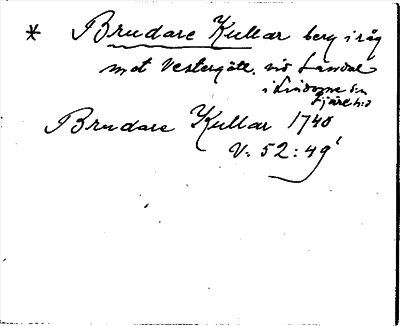 * Brudare Kullar berg i råg
mot Vestergötl. vid Landal
i Lindome sn
Fjäre hd
Brudare Kullar 1740
V. 52:49'